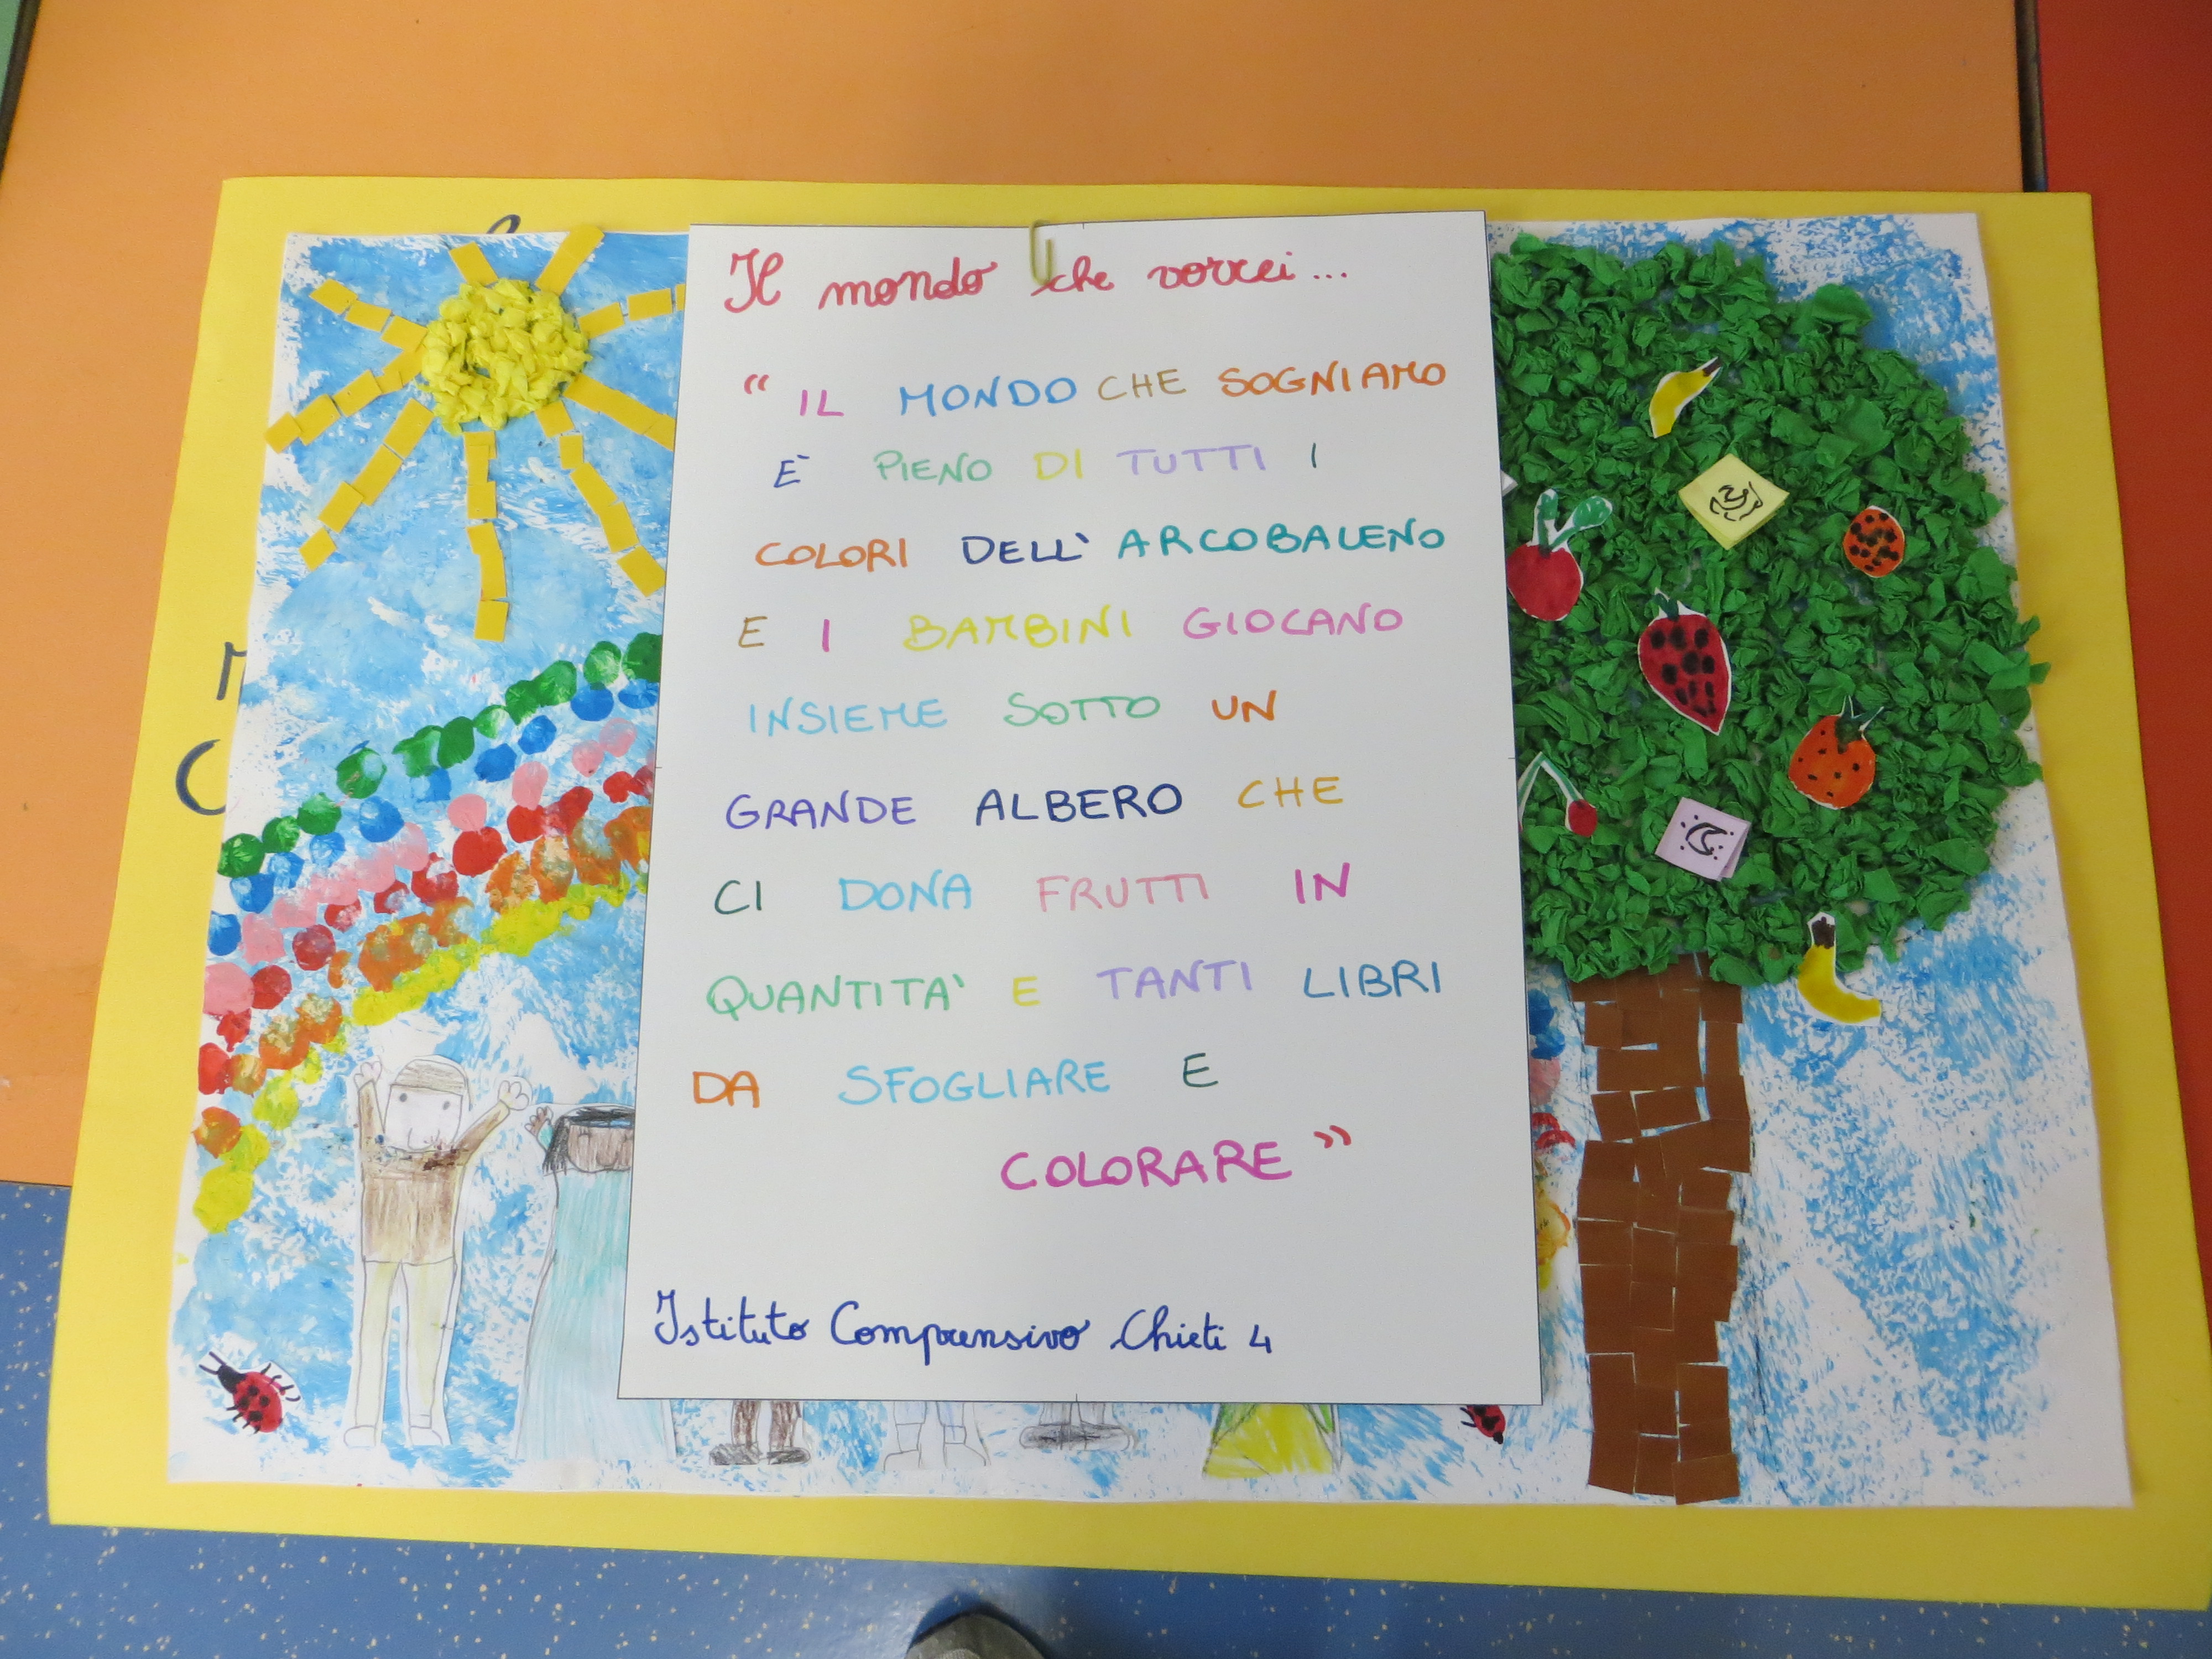 Il mondo che vorrei...
" IL MONDO CHE SOGNIAMO
E` PIENO DI TUTTI I
COLORI DELL' ARCOBALENO
E I BAMBINI GIOCANO
INSIEME SOTTO UN
GRANDE ALBERO CHE
CI DONA FRUTTI IN
QUANTITA' E TANTI LIBRI
DA SFOGLIARE E
COLORARE "
Istituto Comprensivo Chieti 4